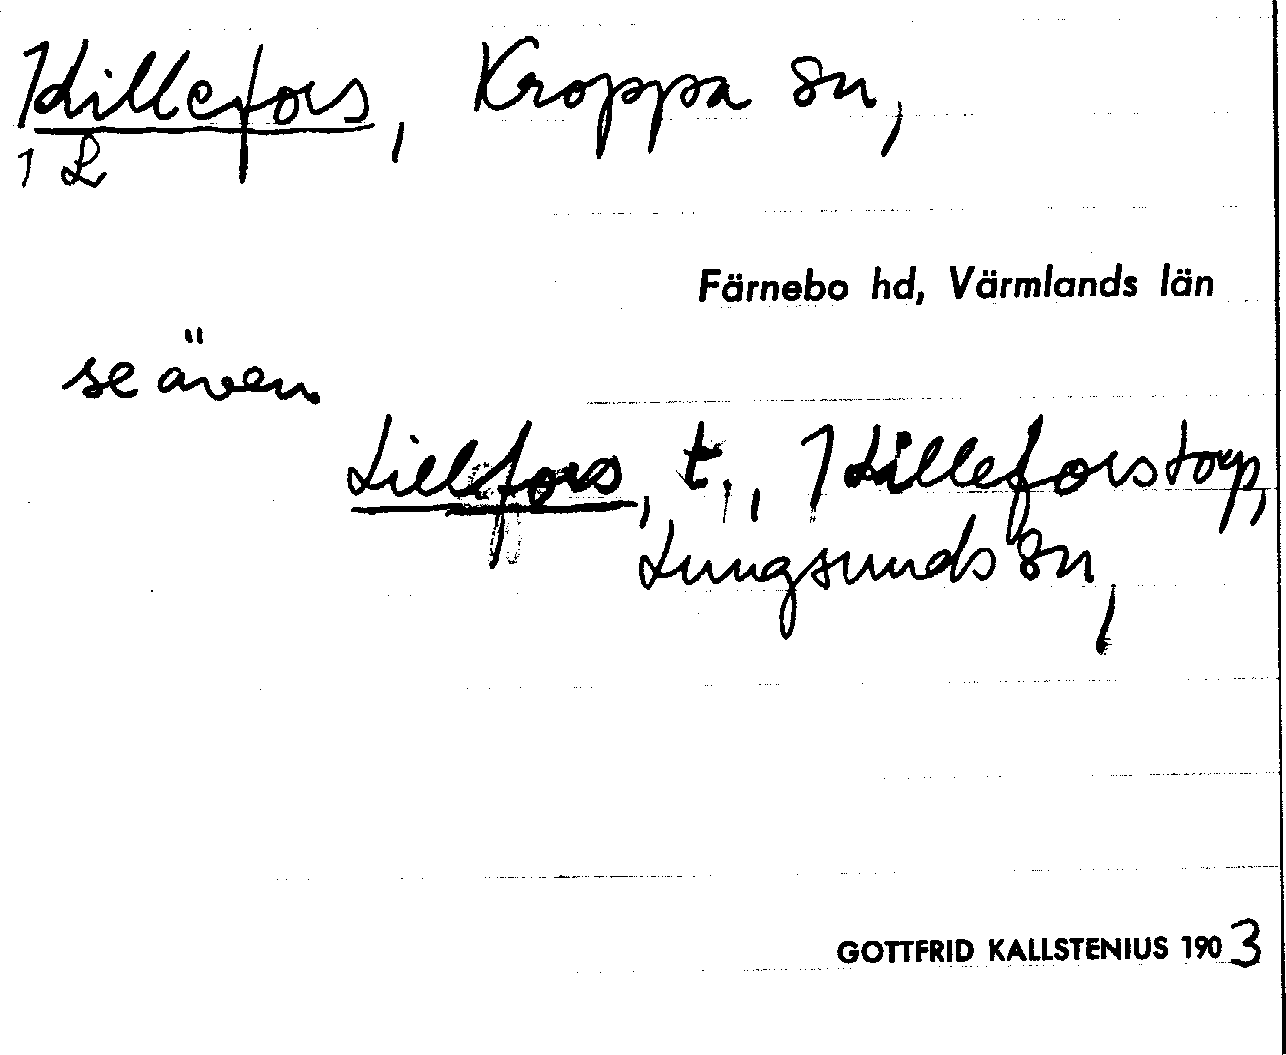 ⌉Lillefors, Kroppa sn,
⌉ L
Färnebo hd, Värmlands län
se även
Lillfors, t., ⌉Lilleforstorp,
Lungsunds sn,
GOTTFRID KALLSTENIUS 1903